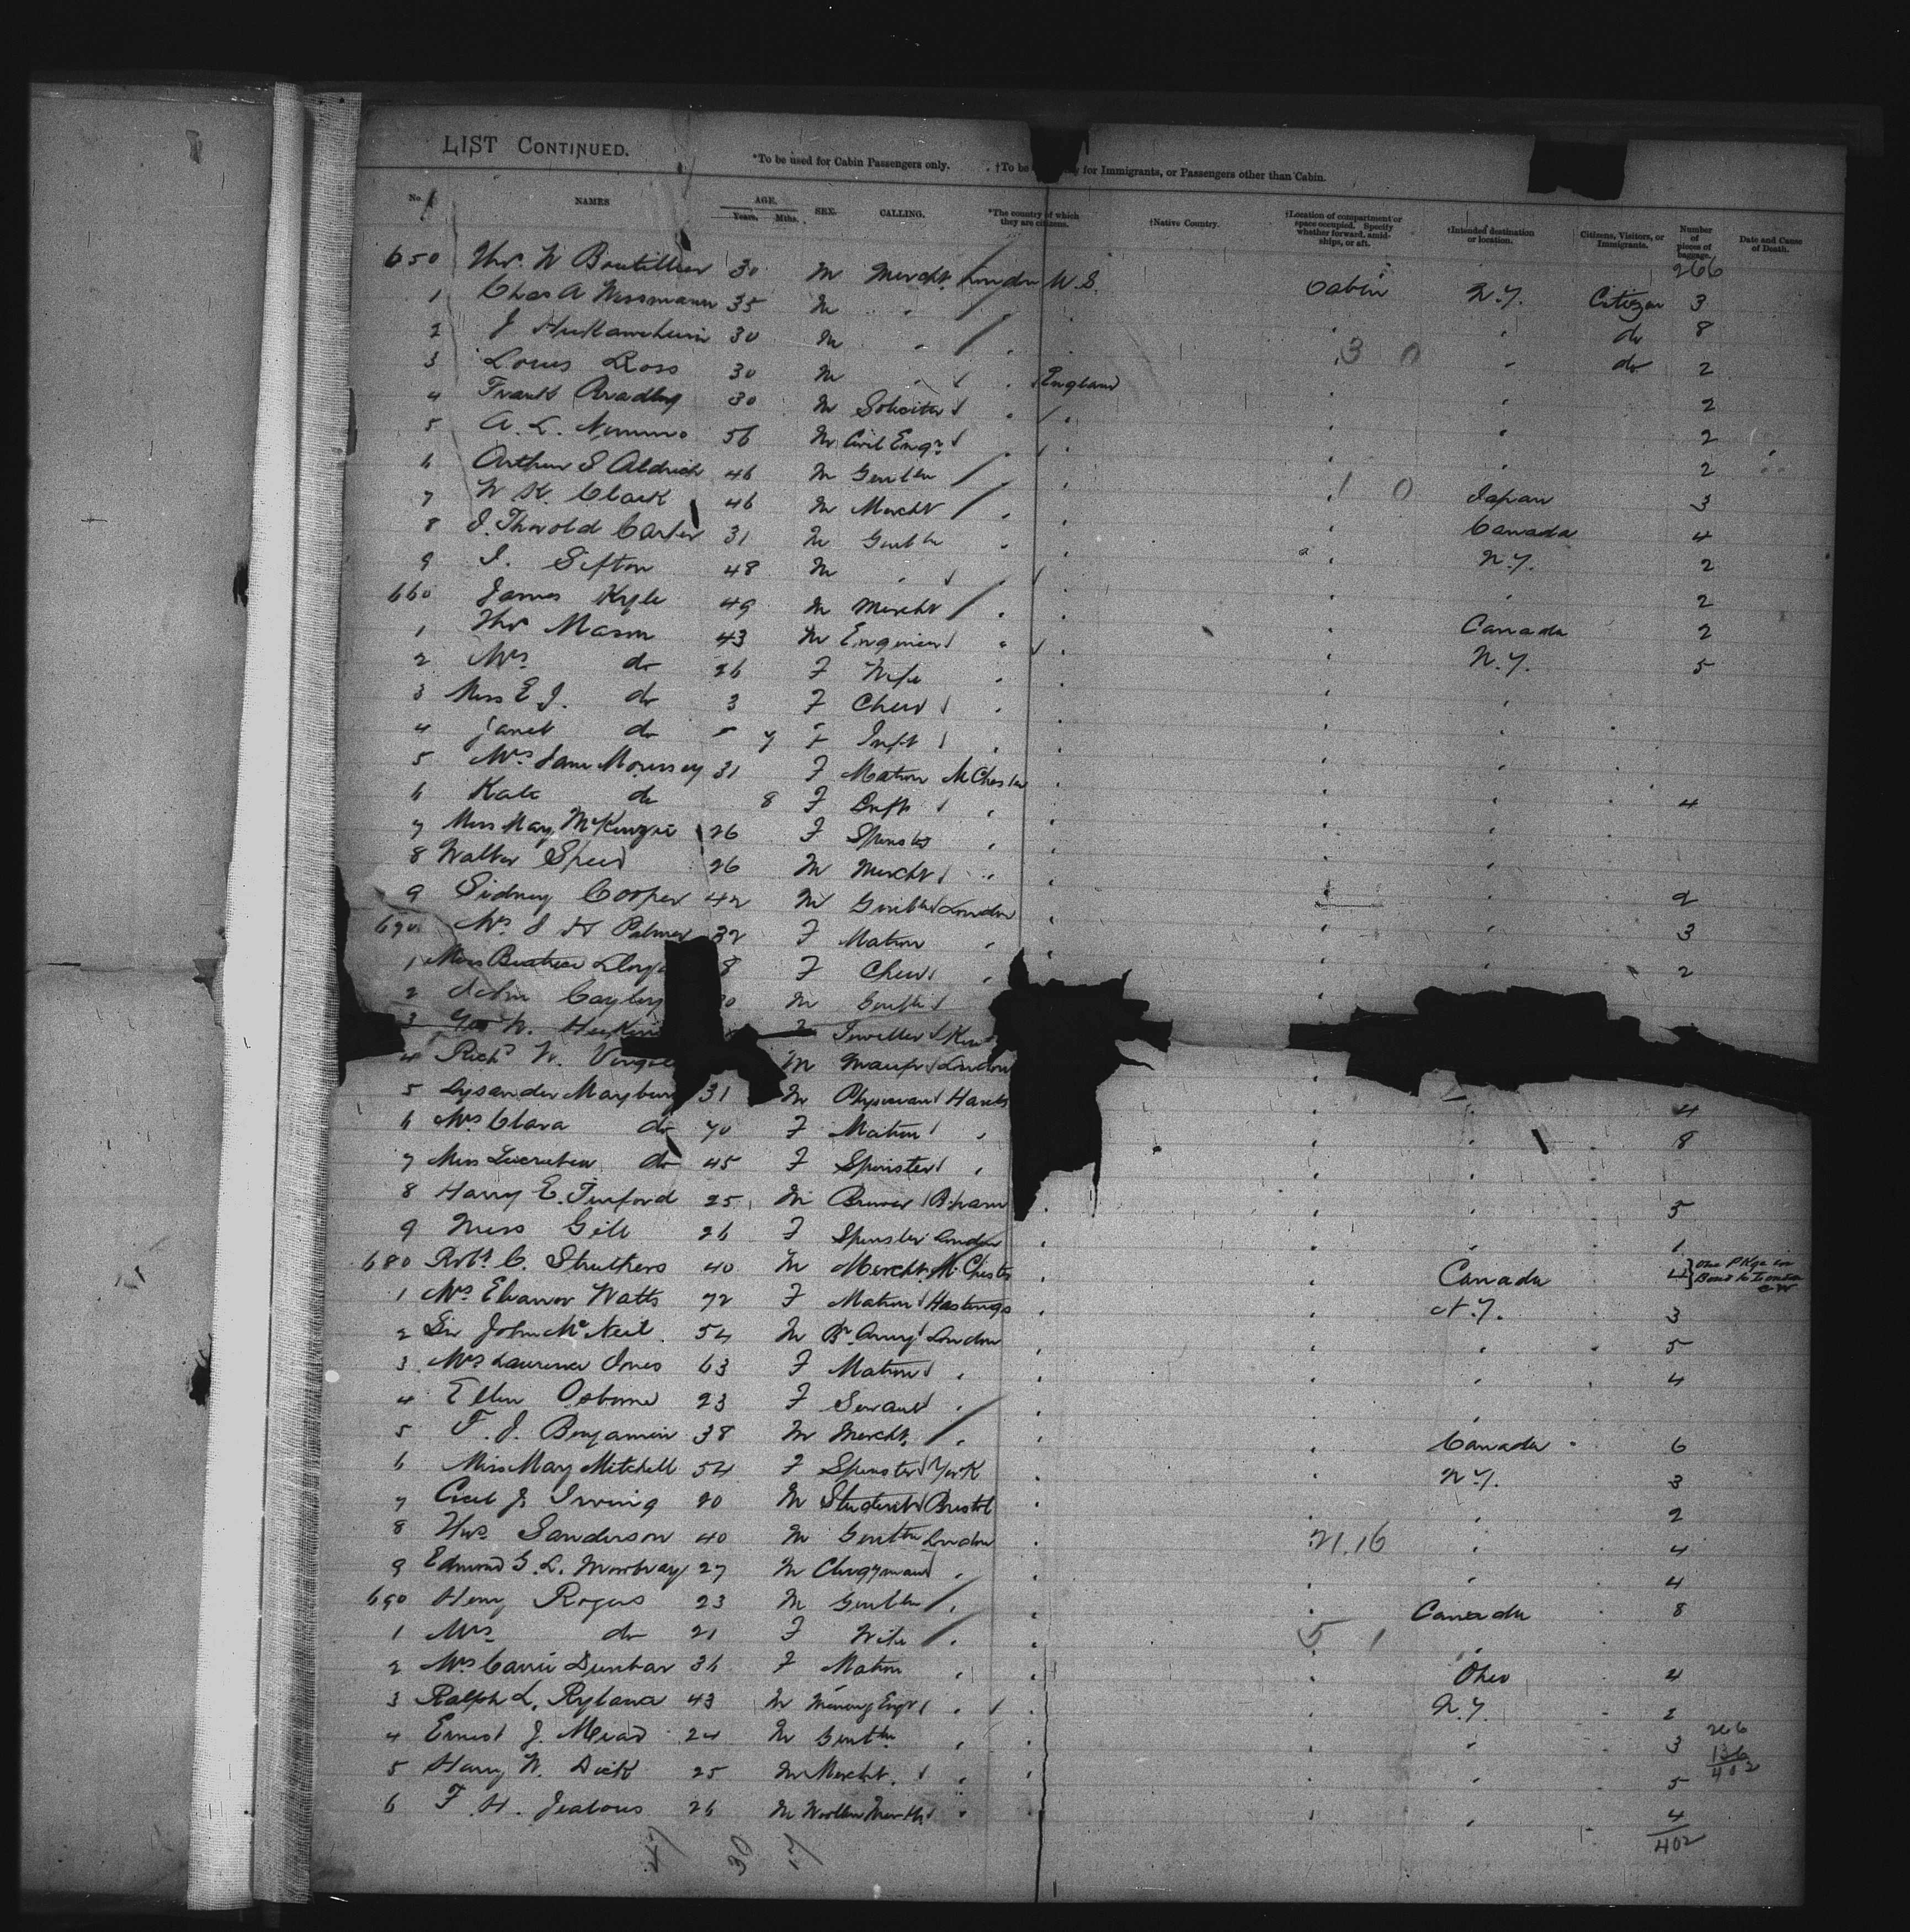 LIST CONTINUED.
*To be used for Cabin Passengers only. †To be for Immigrants, or Passengers other than Cabin.
No. NAMES AGE. Years. Mths. SEX. CALLING. *The country of which they are citizens. †Native Country. †Location of compartment or space occupied. Specify whether forward, amidships, or aft. †Intended destination or location. Citizens, Visitors, or Immigrants. Number of pieces of baggage. Date and Cause of Death.
266
650 W Boutillier 30 M Mercht. London U.S. Cabin N.Y. Citizen 3
1 Chas A 35 M " " " " do 8
2 J 30 M " " " " do 2
3 0
3 Louis Ross 30 M " " England " " 2
4 Frank Bradley 30 M Solicitor " " " " 2
5 A. L. 56 M Civil Engr. " " " " 2
6 Arthur S Aldrich 46 M Gentln " " " Japan 3
1 0
7 W K. Clark 46 M Mercht " " " Canada 4
8 J. Thorold Carter 31 M Gentln " " " N.Y. 2
9 J. Sifton 48 M " " " " " 2
660 James Kyle 49 M Mercht " " " Canada 2
1 Mason 43 M Engineer " " " N.Y. 5
2 Mrs do 26 F Wife " " " "
3 Miss E J. do 3 F Child " " " "
4 Janet do - 7 F Inft " " " "
5 Mrs Jane Morrissey 31 F Matron MChester " " " 4
6 Kate do 8 F Inft " " " "
7 Miss May McKenzie 26 F Spinster " " " "
8 Walter Speed 26 M Mercht " " " " 2
9 Sidney Cooper 42 M Gentln London " " " 3
670 Mrs J H Palmer 32 F Matron " " " " 2
1 Miss Beatrice 8 F Child "
2 John Cayley M Gentln
3 Geo W. M Jeweller
4 Richd W. M Manfr London
5 Lysander Maybury 31 M Physician Hants " " 4
6 Mrs Clara do 70 F Matron " " " 8
7 Miss Lucretia do 45 F Spinster " " "
8 Harry E. 25 M Brewer B'ham " " " 5
9 Miss Gill 26 F Spinster London " " " 1
680 Robt. C. Struthers 40 M Mercht. MChester " " Canada 4 } One Pkge in Bond to London
1 Mrs Eleanor Watts 72 F Matron Hastings " " N.Y. 3
2 Sir John McNeil 54 M Br. Army London " " " 5
3 Mrs Laurence Jones 63 F Matron " " " " 4
4 Ellen Osborne 23 F Servant " " " "
5 F. J. Benjamin 38 M Mercht. " " " Canada 6
6 Miss Mary Mitchell 54 F Spinster York " " N.Y. 3
7 Cecil J. Irving 20 M Student Bristol " " " 2
8 Sanderson 40 M Gentln London " " " 4
21.16
9 Edmond G. L. 27 M Clergyman " " " " 4
690 Henry Rogers 23 M Gentln " " " Canada 8
5 1
1 Mrs do 21 F Wife " " " "
2 Mrs Carrie Dunbar 36 F Matron " " " Ohio 4
3 Ralph L. 43 M Mining Engr " " " N.Y. 2
4 Ernest J. Mead 24 M Gentln " " " " 3
5 Harry W. Dick 25 M Mercht. " " " " 5
6 F. H. Jealous 26 M Woollen " " " " 4
266
136
402
402
47 30 17